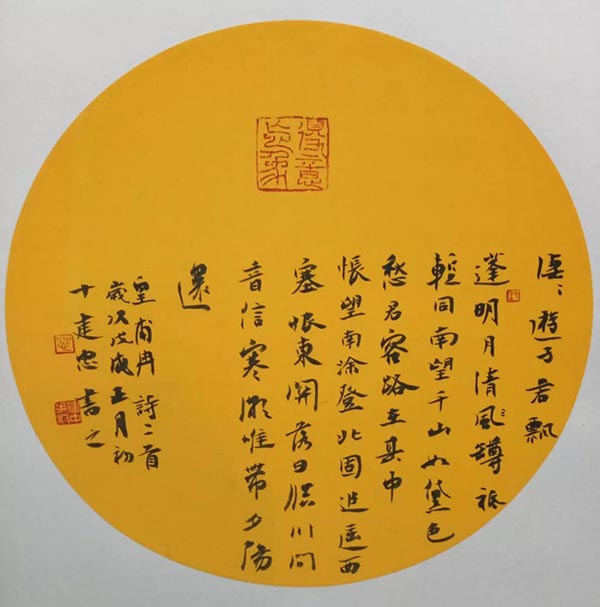 得意忘象
凄〻遊子若飄
蓬明月清風罇祗
輕同南望千山如黛色
愁君客路在其中
悵望南徐登北固迢遥西
塞恨東關落日臨川問
音信寒潮唯帶夕陽
還
皇甫冉詩二首
歲次戊戌正月初
十建忠書之